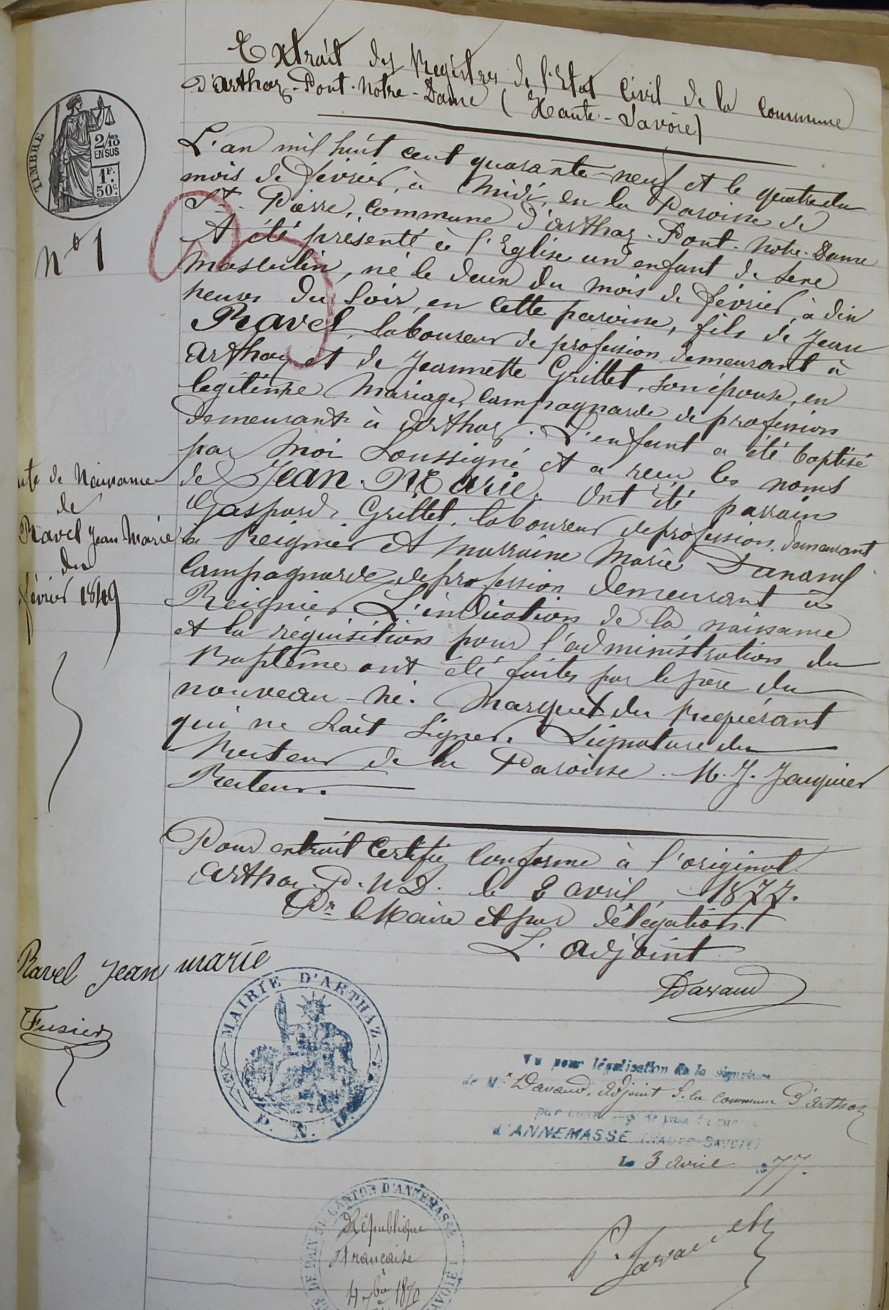 Extrait des Registres de l'Etat Civil de la commune
d'arthaz-Pont-Notre-Dame (Haute-Savoie)
TIMBRE
2/10
EN SUS
1F.
50c
L'an mil huit cent quarante-neuf et le quatre du
mois de février, à midi, en la Paroisse de
St Pierre, commune d'arthaz-Pont-Notre-Dame
N° 1
A été présenté à l'Eglise un enfant de sexe
masculin, né le deux du mois de février, à dix
heures du soir, en cette paroisse, fils de Jean
Ravel, laboureur de profession, demeurant à
arthaz et de Jeannette Grillet, son épouse, en
légitime Mariage, Campagnarde de profession
demeurant à arthaz. L'enfant a été baptisé
par moi soussigné et a reçu les noms
de Jean-Marie. Ont été parrain
Gaspard Grillet, laboureur de profession, demeurant
à Reignier et marraine Marie Danand
Campagnarde de profession demeurant à
Reignier. L'indication de la naissance
et la réquisition pour l'administration du
Baptême ont été faites par le père du
nouveau-né. Marque du requérant
qui ne sait signer. Signature du
Recteur de la Paroisse. M. J. Jacquier
Recteur.
de Naissance
de
Ravel Jean Marie
du
février 1849
Pour extrait certifié conforme à l'original
Arthaz-P.N.D. le 2 avril 1877.
Pr le Maire et par délégation
L'adjoint
Davaud
Ravel Jean marie
Fusier
MAIRIE D'ARTHAZ
P. N. D.
Vu pour légalisation de la signature
de Mr Davaud, adjoint de la commune d'Arthaz
par
d'ANNEMASSE (HAUTE-SAVOIE)
Le 3 avril 1877.
DE PAIX DU CANTON D'ANNEMASSE
République
Française
4 7bre 1870